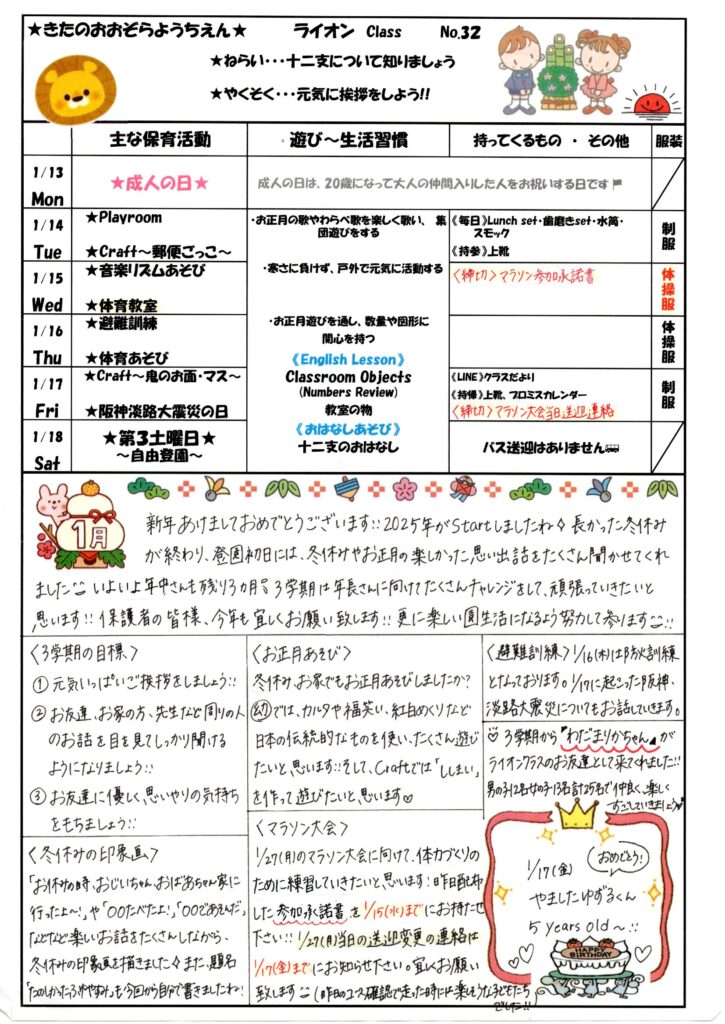 ★きたのおおぞらようちえん★ ライオン Class No.32
★ねらい・・・十二支について知りましょう
★やくそく・・・元気に挨拶をしよう!!
主な保育活動 遊び～生活習慣 持ってくるもの ・ その他 服装
1/13
Mon
★成人の日★
成人の日は、20歳になって大人の仲間入りした人をお祝いする日です
1/14
Tue
★Playroom
★Craft～郵便ごっこ～
・お正月の歌やわらべ歌を楽しく歌い、集
団遊びをする
《毎日》Lunch set・歯磨きset・水筒・
スモック
《持参》上靴
制服
1/15
Wed
★音楽リズムあそび
★体育教室
・寒さに負けず、戸外で元気に活動する
〈締切〉マラソン参加承諾書
体操服
1/16
Thu
★避難訓練
★体育あそび
・お正月遊びを通し、数量や図形に
関心を持つ
《English Lesson》
体操服
1/17
Fri
★Craft～鬼のお面・マス～
★阪神淡路大震災の日
Classroom Objects
(Numbers Review)
教室の物
《おはなしあそび》
《LINE》クラスだより
《持帰》上靴、プロミスカレンダー
〈締切〉マラソン大会当日送迎連絡
制服
1/18
Sat
★第3土曜日★
～自由登園～
十二支のおはなし
バス送迎はありません
1月
新年あけましておめでとうございます!! 2025年がStartしましたね 長かった冬休み
が終わり、登園初日には、冬休みやお正月の楽しかった思い出話をたくさん聞かせてくれ
ました いよいよ年中さんも残り3カ月 3学期は年長さんに向けてたくさんチャレンジをして、頑張っていきたいと
思います!! 保護者の皆様、今年も宜しくお願い致します!! 更に楽しい園生活になるよう努力して参ります!!
〈3学期の目標〉
① 元気いっぱいご挨拶をしましょう!!
② お友達、お家の方、先生など周りの人
のお話を目を見てしっかり聞ける
ようになりましょう!!
③ お友達に優しく、思いやりの気持ち
をもちましょう!!
〈お正月あそび〉
冬休み、お家でもお正月あそびしましたか?
幼では、カルタや福笑い、紅白めくりなど
日本の伝統的なものを使い、たくさん遊び
たいと思います!! そして、Craftでは「ししまい」
を作って遊びたいと思います♡
〈避難訓練〉1/16(木)は防火訓練
となっております。1/17に起こった阪神、
淡路大震災についてもお話していきます。
♡3学期から『わだまりかちゃん』が
ライオンクラスのお友達として来てくれました!!
男の子12名女の子13名計25名で仲良く、楽しく
すごしていきましょう
〈冬休みの印象画〉
「お休みの時、おじいちゃん、おばあちゃん家に
行ったよ〜!」や「〇〇たべたよ!」「〇〇であそんだ」
などなど楽しいお話をたくさんしながら、
冬休みの印象画を描きました また、題名
「たのしかったふゆやすみ」も今回から自分で書きましたね!
〈マラソン大会〉
1/27(月)のマラソン大会に向けて、体力づくりの
ために練習していきたいと思います! 昨日配布
した参加承諾書を1/15(水)までにお持たせ
下さい!! 1/27(月)当日の送迎変更の連絡は
1/17(金)までにお知らせ下さい。宜しくお願い
致します (昨日のコース確認で走った時には楽しそうな子どもたち
でした!!
1/17(金)
おめでとう!
やましたゆずるくん
5 years old ～!!
HAPPY BIRTHDAY